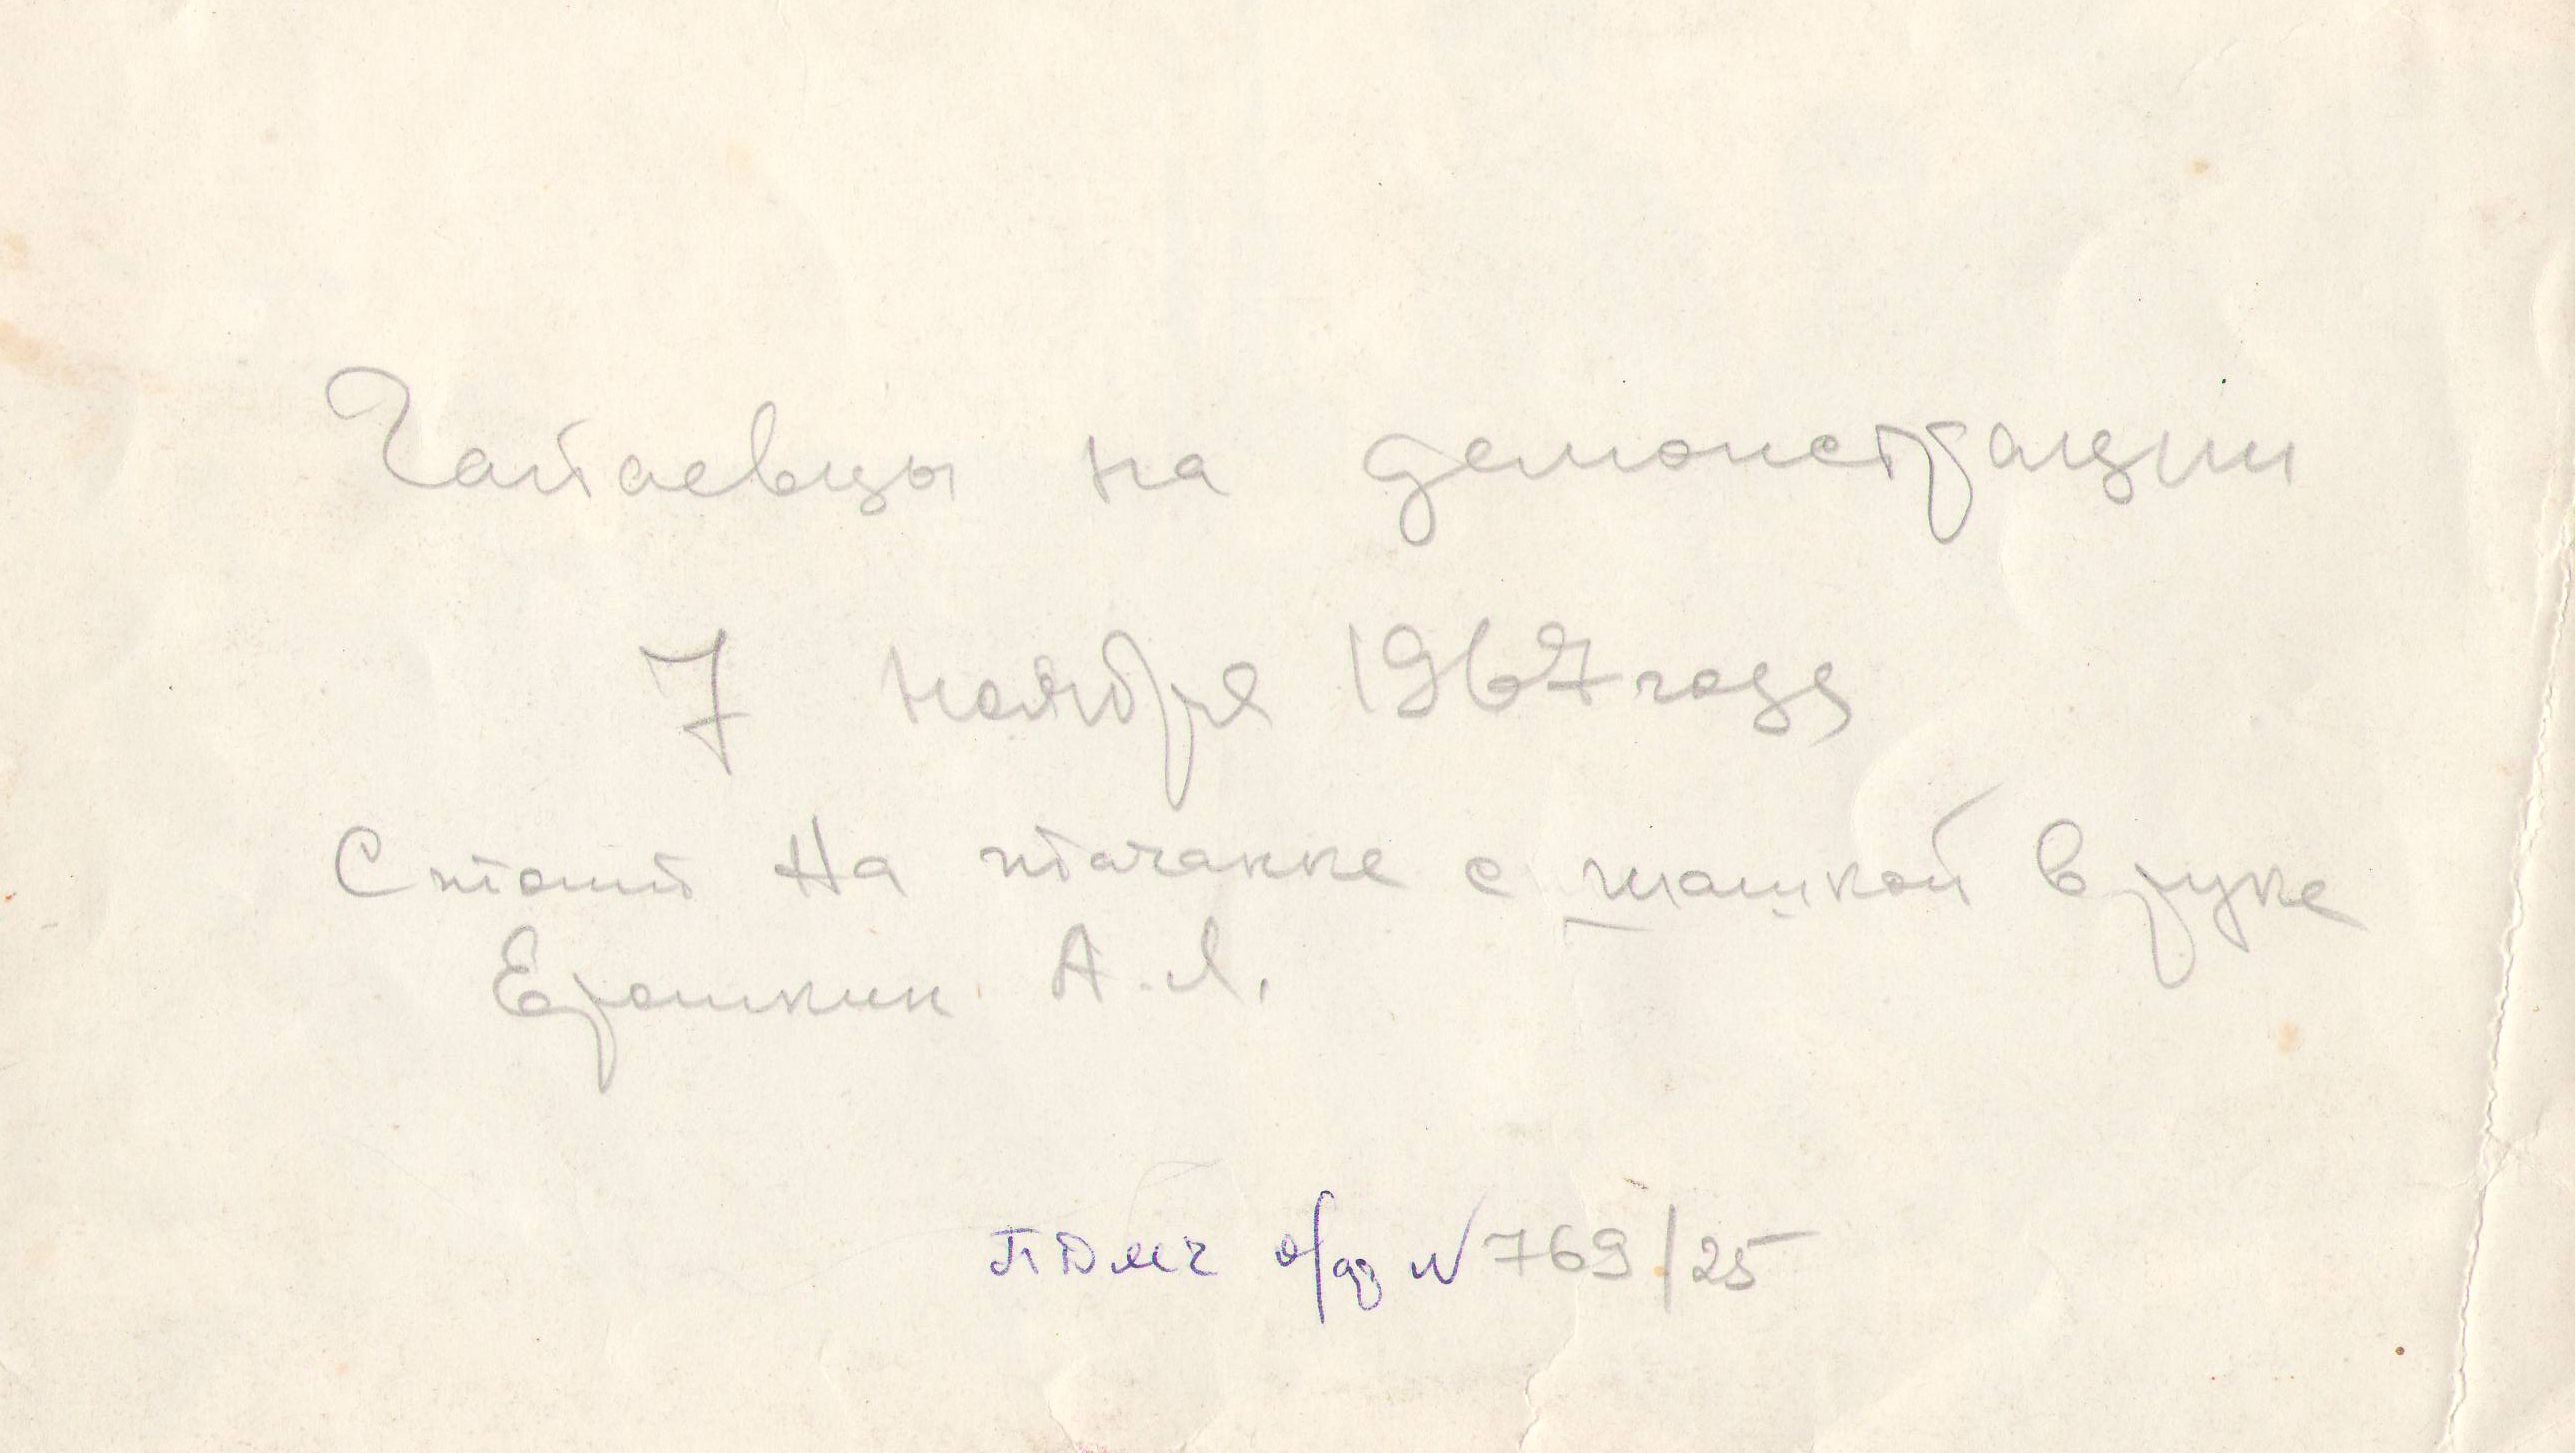 Чапаевцы на демонстрации
7 ноября 1967 года
Стоит на тачанке с шашкой в руке
Ерошкин А.Л.
ПДМЧ о/дз N 769/25